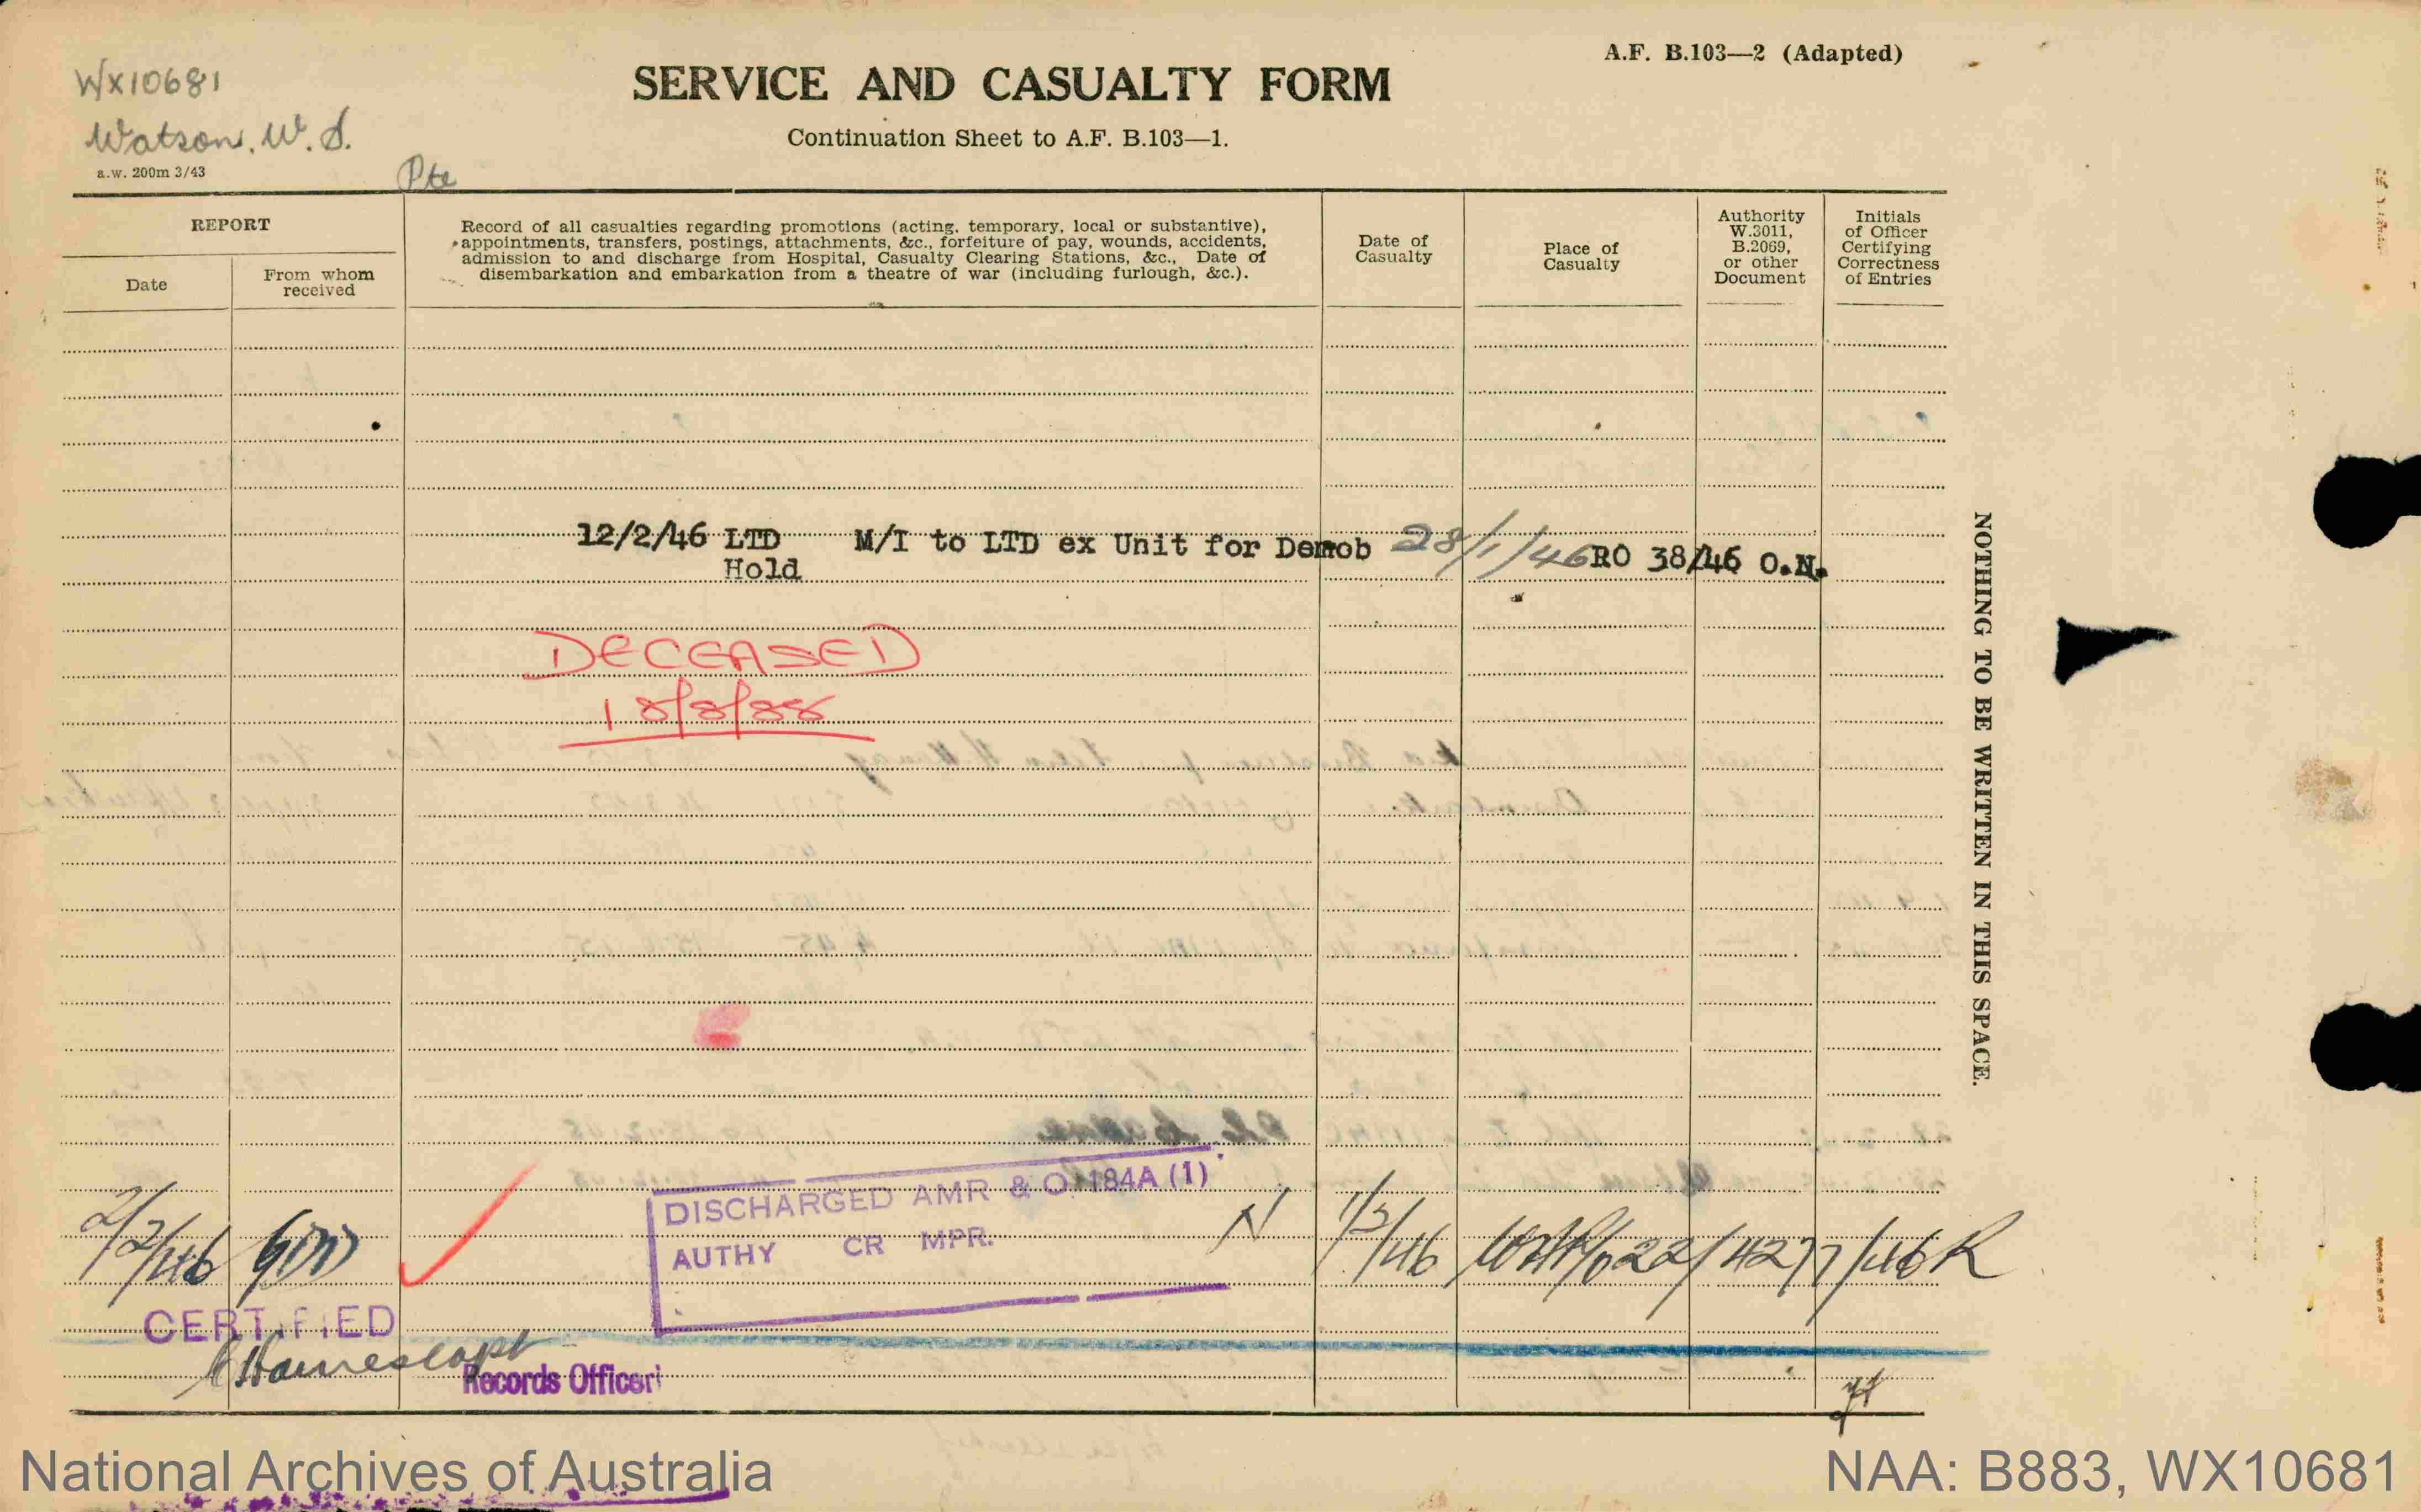 WX10681
Watson. W. S.
a.w. 200m 3/43
Pte
SERVICE AND CASUALTY FORM
Continuation Sheet to A.F. B.103—1.
A.F. B.103—2 (Adapted)
REPORT
Date
From whom
received
Record of all casualties regarding promotions (acting, temporary, local or substantive),
appointments, transfers, postings, attachments, &c., forfeiture of pay, wounds, accidents,
admission to and discharge from Hospital, Casualty Clearing Stations, &c., Date of
disembarkation and embarkation from a theatre of war (including furlough, &c.).
Date of
Casualty
Place of
Casualty
Authority
W.3011,
B.2069,
or other
Document
Initials
of Officer
Certifying
Correctness
of Entries
12/2/46 LTD M/I to LTD ex Unit for Demob 28/1/46 RO 38/46 O.N.
Hold
DECEASED
18/8/88
NOTHING TO BE WRITTEN IN THIS SPACE.
DISCHARGED AMR & O. 184A (1)
AUTHY CR MPR.
2/2/46
N
CERTIFIED
Records Officer
National Archives of Australia
NAA: B883, WX10681